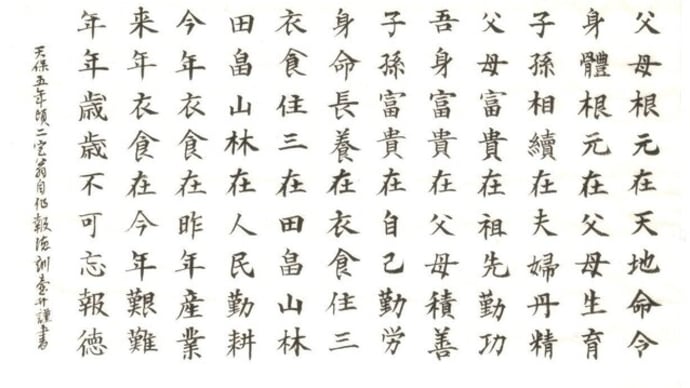 父母根元在天地命令
身體根元在父母生育
子孫相續在夫婦丹精
父母富貴在祖先勤功
吾身富貴在父母積善
子孫富貴在自己勤労
身命長養在衣食住三
衣食住三在田畠山林
田畠山林在人民勤耕
今年衣食在昨年産業
来年衣食在今年艱難
年年歳歳不可忘報徳
天保五年頃二宮翁自作報徳訓 謹書